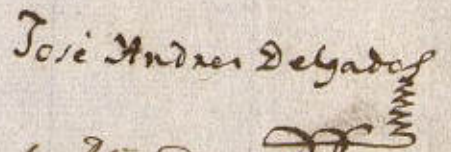 José Andres Delgado